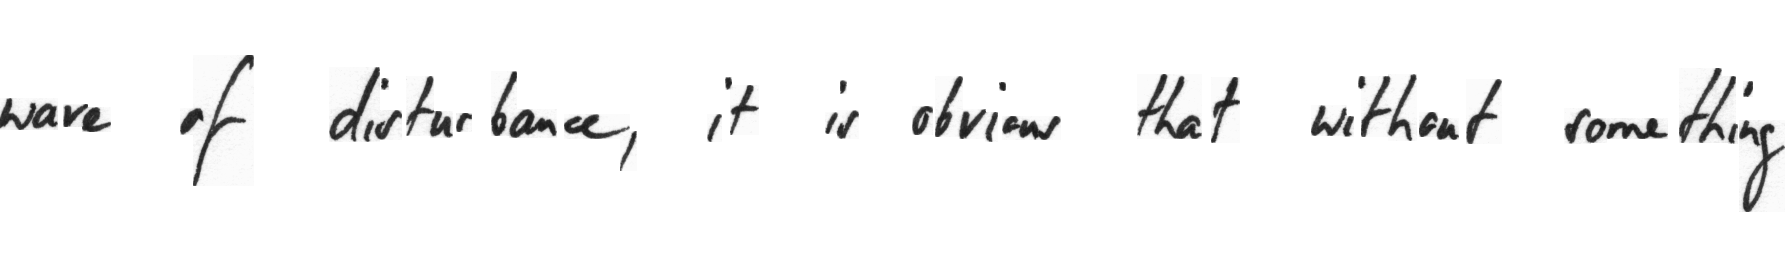 wave of disturbance, it is obvious that without something